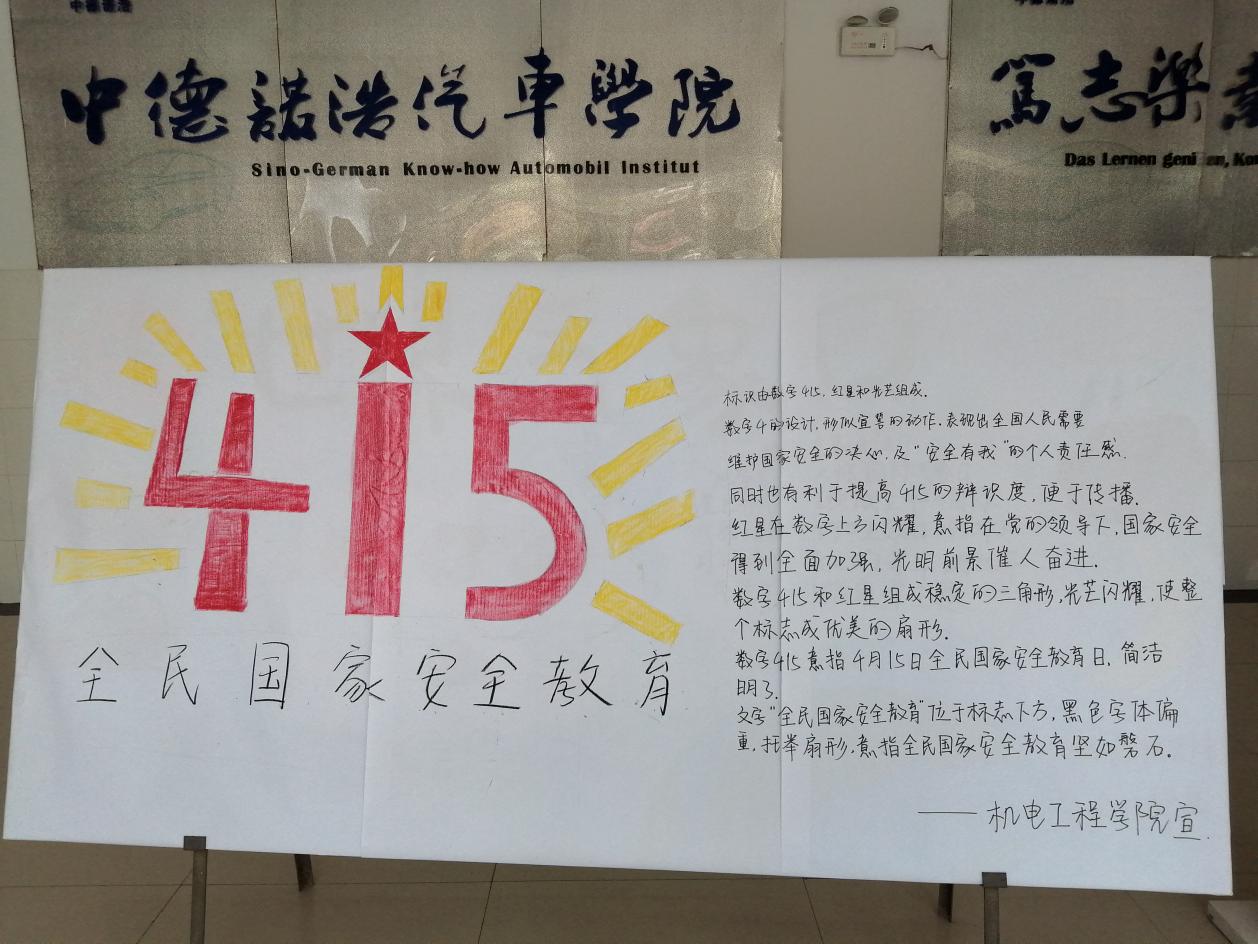 中德諾浩汽車學院
Sino-German Know-how Automobil Institut
篤志樂業
Das Lernen
415
全民国家安全教育
标识由数字415，红星和光芒组成。
数字4的设计，形似宣誓的动作，表现出全国人民需要
维护国家安全的决心，及“安全有我”的个人责任感。
同时也有利于提高415的辩识度，便于传播。
红星在数字上方闪耀，意指在党的领导下，国家安全
得到全面加强，光明前景催人奋进。
数字415和红星组成稳定的三角形，光芒闪耀，使整
个标志成优美的扇形。
数字415意指4月15日全民国家安全教育日，简洁
明了。
文字“全民国家安全教育”位于标志下方，黑色字体偏
重，托举扇形，意指全民国家安全教育坚如磐石。
——机电工程学院宣